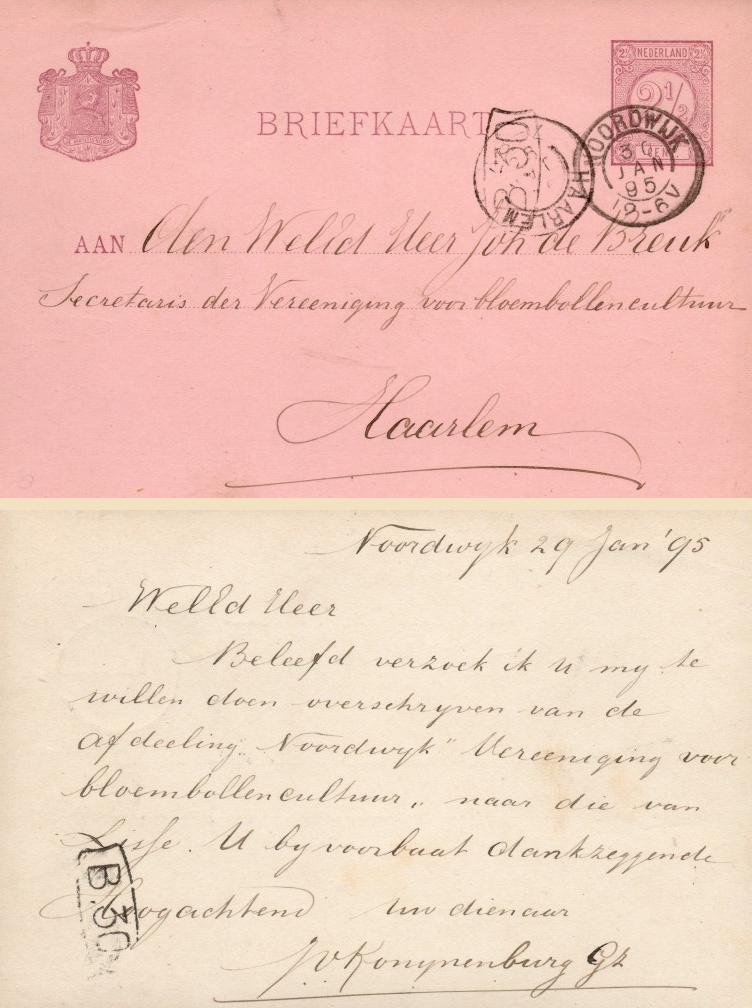 2½ NEDERLAND 2½
2½
CENT
BRIEFKAART
NOORDWIJK
30
JAN
95
12-6V
HAARLEM
AAN Den WelEd Heer Joh de Breuk
Secretaris der Vereeniging voor bloembollencultuur
Haarlem
Noordwyk 29 Jan '95
WelEd Heer
Beleefd verzoek ik u my te
willen doen overschryven van de
afdeeling „Noordwyk" Vereeniging voor
bloembollencultuur„ naar die van
Lisse. U by voorbaat dankzeggende
Hoogachtend uw dienaar
JvKonynenburg Gz
B.30